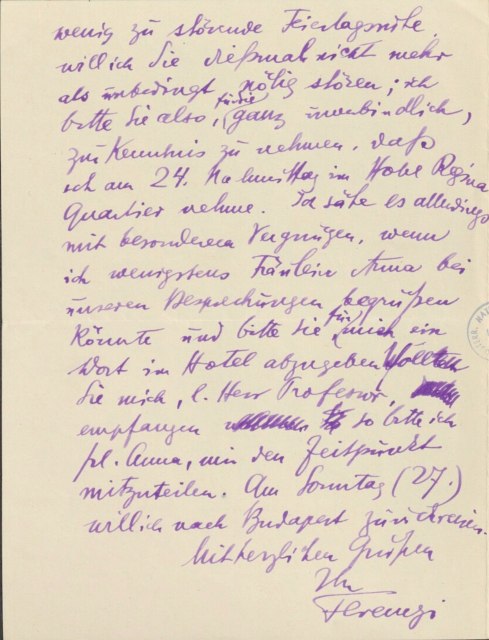 wenig zu störende Feiertagsruhe
will ich Sie diesmal nicht mehr
als unbedingt nötig stören; ich
bitte Sie also, für Sie ganz unverbindlich,
zur Kenntnis zu nehmen, daß
ich am 24. Nachmittag im Hotel Regina
Quartier nehme. Ich sähe es allerdings
mit besonderem Vergnügen, wenn
ich wenigstens Fräulein Anna bei
unseren Besprechungen begrüßen
könnte und bitte Sie für mich ein
Wort im Hotel abzugeben. Wollten
Sie mich, l. Herr Professor,
empfangen so bitte ich
frl. Anna, mir den Zeitpunkt
mitzuteilen. Am Sonntag (27.)
will ich nach Budapest zurückreisen.
Mit herzlichen Grüßen
Ihr
Ferenczi